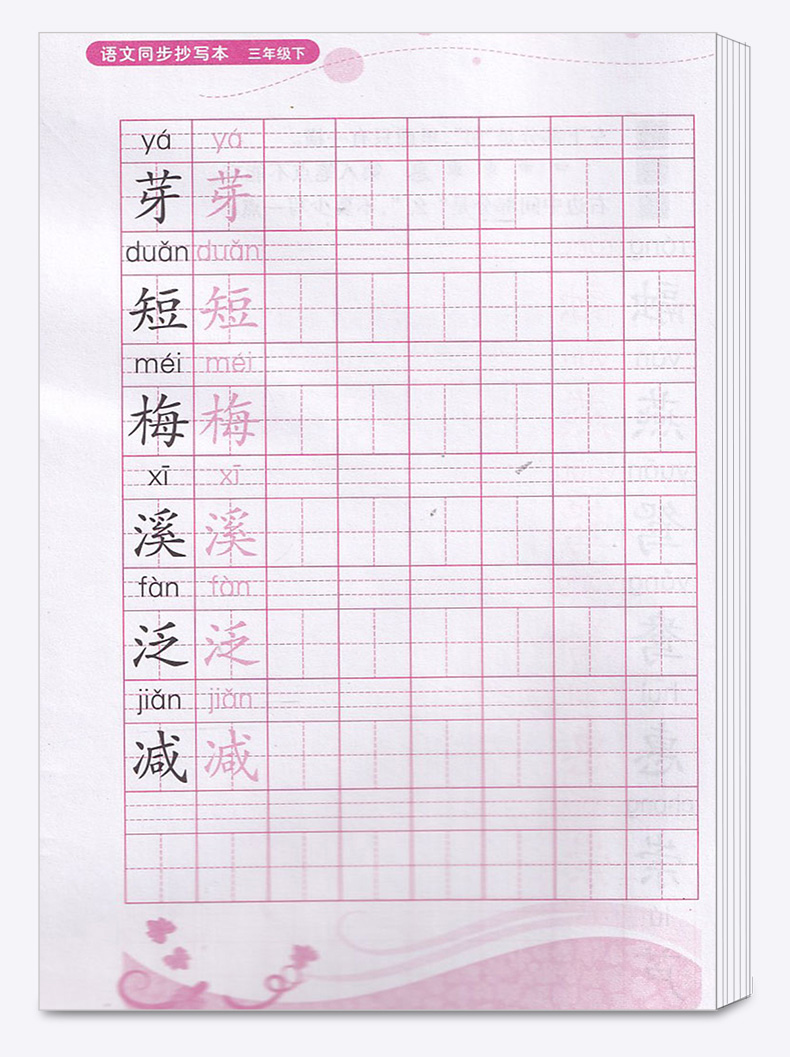 语文同步抄写本 三年级下
yá yá
芽 芽
duǎn duǎn
短 短
méi méi
梅 梅
xī xī
溪 溪
fàn fàn
泛 泛
jiǎn jiǎn
减 减